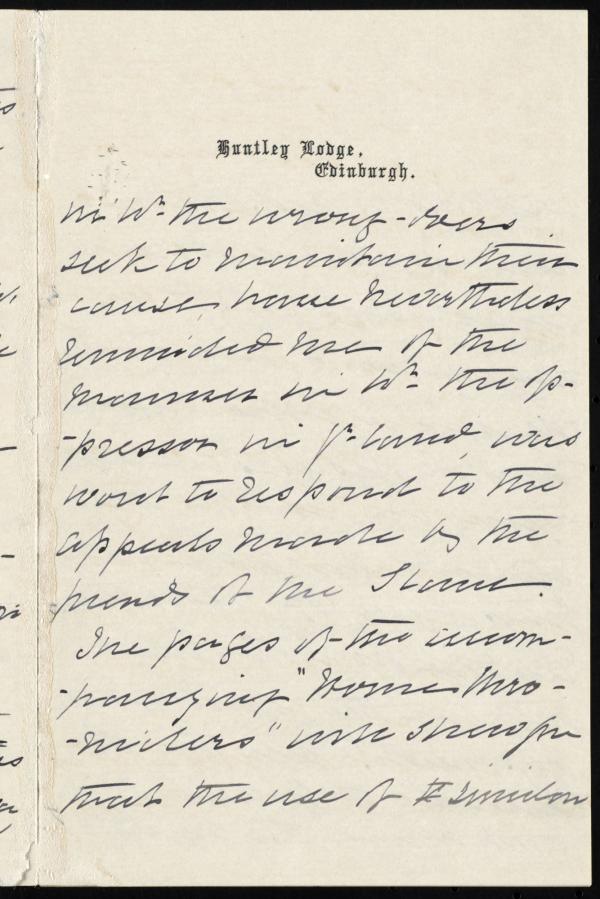 Huntley Lodge,
Edinburgh.
in wh. the wrong-doers
seek to maintain their
cause, have nevertheless
reminded me of the
manner in wh. the op-
-pressor in yr. land, was
wont to respond to the
appeals made by the
friends of the Slave.
The pages of the accom-
-panying "Home Chro-
-niclers" will show you
that the use of similar